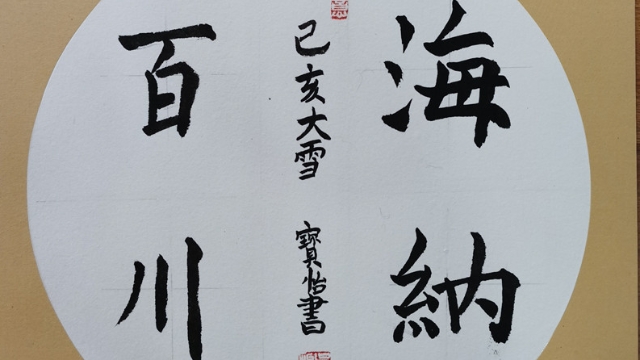 海納
百川
己亥大雪
寶怡書